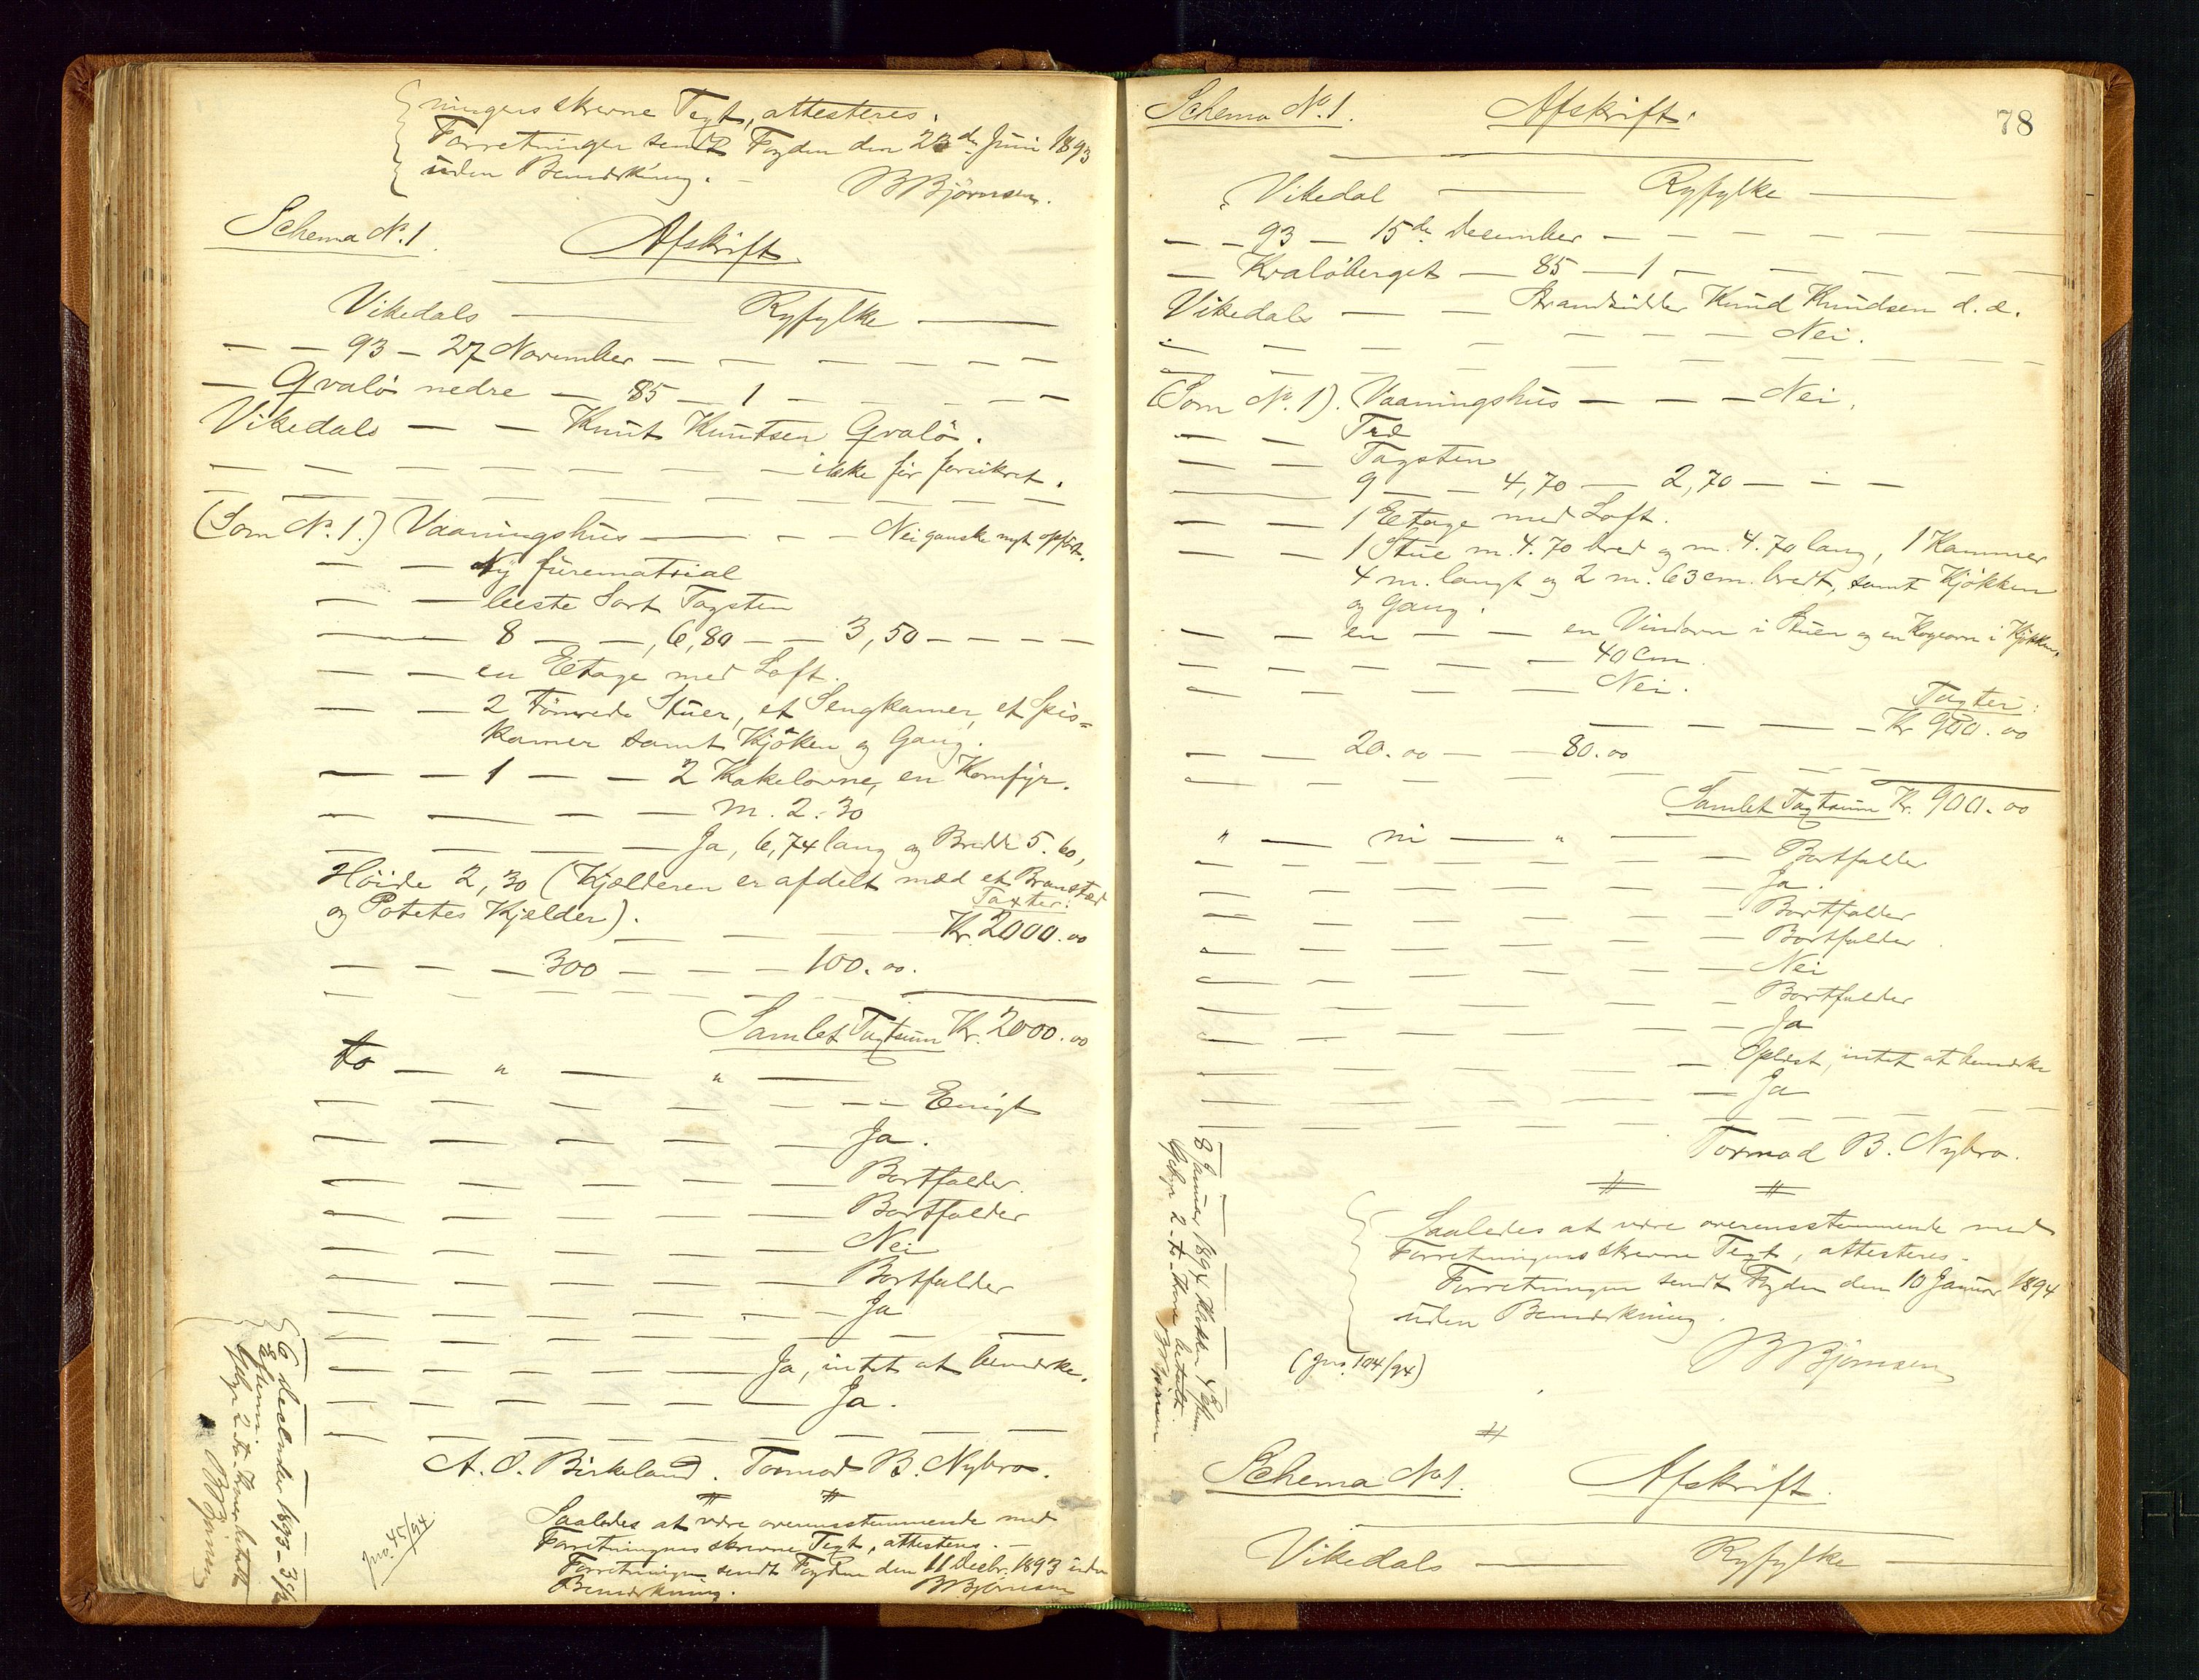 ningens skrevne Text, attesteres.
Forretningen sendt Fogden den 23de Juni 1893
uden Bemærkning. – BBjörnsen.
Schema No. 1. Afskrift.
Vikedals — Ryfylke —
— — 93 — 27 November — — — — —
— Qvalö nedre — 85 — 1 — — — — —
Vikedals — — Knut Knutsen Qvalö.
— — — — — — — — ikke för forsikret.
— — — — — — — — —
(Som No. 1.) Vaaningshus — — — Nei ganske nyt opfört.
— — Ny furematrial
— — beste Sort Tagsten
— — 8 — — 6,80 — — 3,50 — — — —
— — en Etage med Loft.
— — 2 Tömrede Stuer, et Sengkamer, et Spis=
kamer samt Kjöken og Gang.
— — 1 — — 2 Kakelovne, en Komfyr.
— — — — — m. 2.30
— — — — — Ja, 6,74 lang og Bredde 5.60,
Höide 2,30 (Kjælderen er afdelt med et
og Potetes Kjelder). Taxter:
— — — — Kr. 2000.00
— — — 300 — — — 100.00.
— — — — — — — —
Samlet Taxtsum Kr. 2000.00
to — " — " —
— — — — — — — Enigt
— — — — — — Ja.
— — — — — — Bortfalder.
— — — — — — Bortfalder
— — — — — — Nei
— — — — — — Bortfalder
— — — — — — Ja
— — — — — — — — —
— — — — — — Ja, intet at bemærke.
— — — — — — Ja.
— — — — — — — — —
A. O. Birkeland. Tormod B. Nybro.
# #
Saaledes at være overensstemmende med
Forretningens skrevne Text, attesteres. –
Forretningen sendt Fogden den 11 Decbr. 1893 uden
Bemærkning. BBjörnsen
Jno. 45/94
6 december 1893 –
Eftm.
Gebyr 2 to Kroner betalt
BBjörnsen
Schema No. 1. Afskrift. 78
Vikedal — Ryfylke —
— — 93 — 15de December — — — — —
— Kvalöberget — 85 — 1 — — — — —
Vikedals — — Strandsidder Knud Knudsen d. æ.
— — — — — — — — Nei.
— — — — — — — — —
(Som No. 1). Vaaningshus — — — Nei.
— — Træ
— — Tagsten
— — 9 — — 4,70 — 2,70 — — —
— — 1 Etage med Loft.
— — 1 Stue m. 4.70 bred og m. 4.70 lang, 1 Kammer
4 m. langt og 2 m. 63 cm. bredt, samt Kjökken
og Gang.
— — en — — en Vindovn i Stuen og en Kogeovn i Kjökken.
— — — — — 40 cm.
— — — — — Nei.
Taxter:
— — — — Kr 900.00
— — 20.00 — — 80.00
— — — — — — — —
Samlet Taxtsum Kr. 900.00
" — ni — " —
— — — — — — Bortfalder
— — — — — — Ja.
— — — — — — Bortfalder
— — — — — — Bortfalder
— — — — — — Nei
— — — — — — Bortfalder
— — — — — — Ja
— — — — — — Oplæst, intet at bemærke
— — — — — — Ja
— — — — — — — — —
Tormod B. Nybro.
# #
Saaledes at være overensstemmende med
Forretningens skrevne Text, attesteres. –
Forretningen sendt Fogden den 10 Januar 1894
uden Bemærkning.
(Jno. 104/94) BBjörnsen
8 Januar 1894 Klokken 4 Eftm.
Gebyr 2 – to – Kroner betalt.
BBjörnsen.
#
Schema No 1. Afskrift.
Vikedals — Ryfylke —